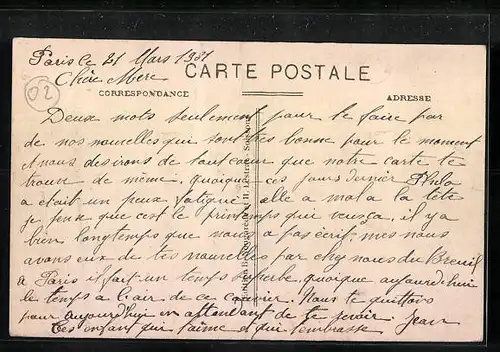 Paris le 21 Mars 1931
Chère Mère
CARTE POSTALE
CORRESPONDANCE
ADRESSE
02
Deux mots seulement pour te faire par
de nos nouvelles qui sont très bonne pour le moment
et nous desirons de tout coeur que notre carte te
trouve de même. quoique ces jours dernier
a était un peux fatigué elle a mal a la tête
je peux que cest le printemps qui veut ça, il y a
bien longtemps que nous a pas écrit mes nous
avons eux de tes nouvelles par chez nous du Breuil
a Paris il fait un temps superbe quoique aujourd'hui
le temps a l'air de ce couvrir. Nous te quittons
pour aujourd'hui en attendant de te revoir. Jean
Tes enfant qui t'aime et qui t'embrasse